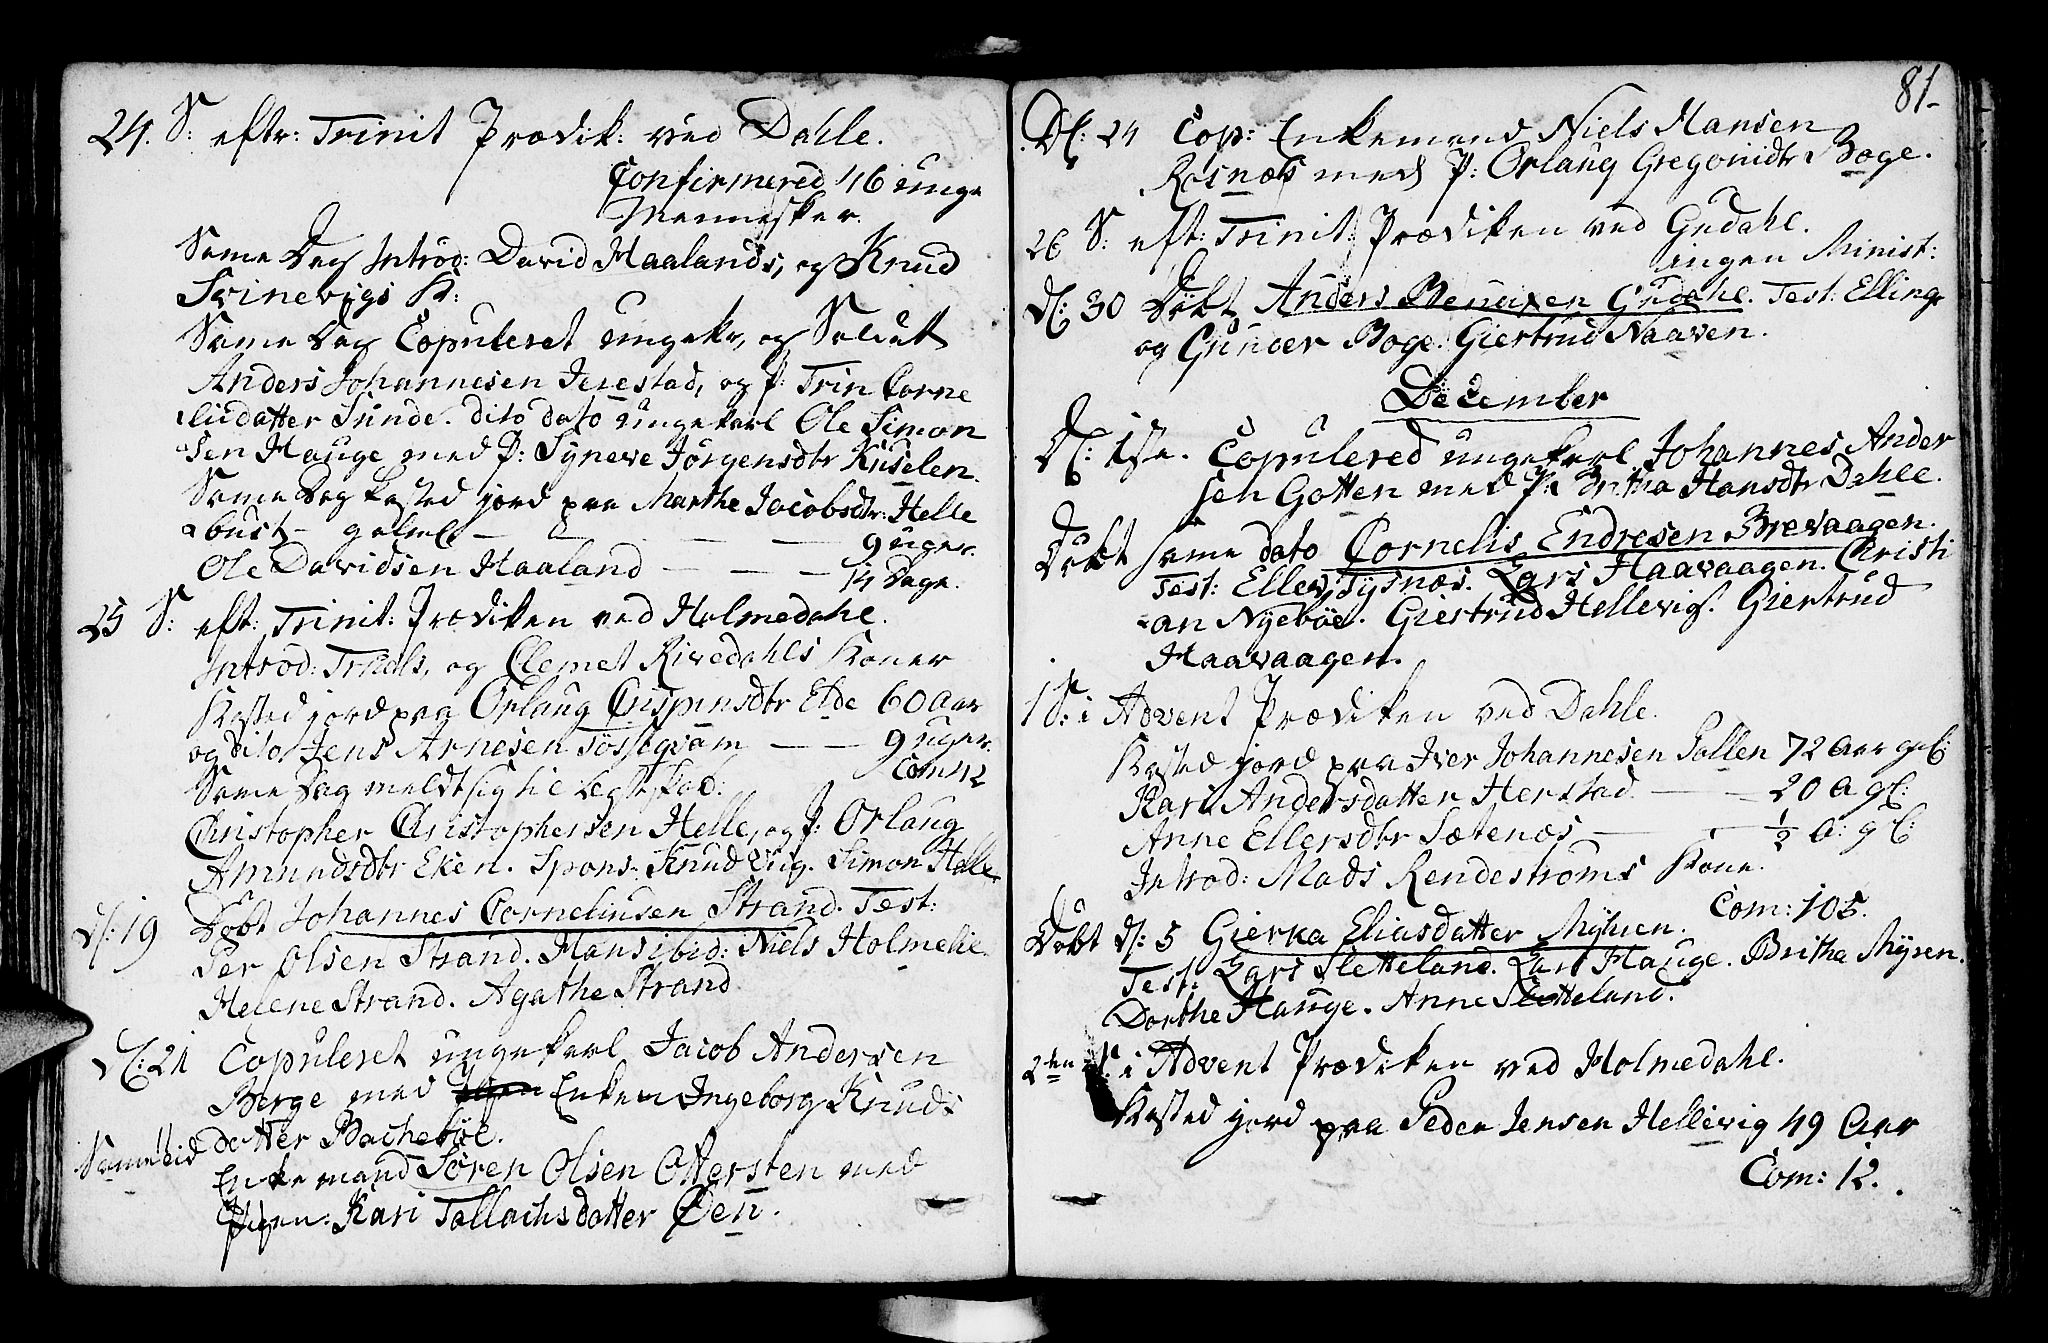 24. S: eftr: Trinit Prædik: ved Dahle.
Confirmered 16 unge
Mennisker.
Same Dag Introd: David Haalands, og Knud
Svinevigs K:
Same Dag Copuleret ungekr, og Soldat
Anders Johannesen Jerestad, og P: Trin Corne
liudatter Sunde. dito dato ungekarl Ole Simon
sen Hauge med P: Syneve Jørgensdtr Küselen.
Same Dag kasted jord paa Marthe Jacobsdtr: Helle
bust - - - 9 uger.
Ole Davidsen Haaland - - - 14 Dage.
25 S: eft: Trinit: Prædiken ved Holmedahl.
Introd: og Clemet Rivedahls Koner
Kasted jord paa Orlaug Crispinsdtr Elde 60 aar
og dito Jens Arnesen - - 9 uger.
Com 12
Same Dag meldt sig til
Christopher Christophersen Helle, og P: Orlaug
Amundsdtr Eken. Spons: Knud Simon Helle
d: 19 Døbt Johannes Corneliusen Strand. Test:
Per Olsen Strand. Hans ibid: Niels Holmelie.
Helene Strand. Agathe Strand
d: 21 Copuleret ungekarl Jacob Andersen
Berge med Enken Ingeborg Knuds
datter Bachebøe.
Same tid Enkemand Søren Olsen Ottersten med
Pigen: Kari Tallachsdatter Øen.
81-
d: 24 Cop: Enkemand Niels Hansen
Rosnæs med P: Orlaug Gregonidtr Boge.
26 S: eft: Trinit: Prædiken ved Gudahl.
ingen Minist:
d: 30 Døbt Anders Gudahl. Test: Elling
og Guncer Boge. Giertrud Naaven.
December
d: 1ste. Copulered ungekarl Johannes Ander
sen Gotten med P: Britha Hansdtr Dahle.
Døbt same dato Cornelis Endresen Brevaagen.
Test: Ellev Tysnæs. Lars Haavaagen. Christi
an Nyebøe. Giertrud Hellevig. Giertrud
Haavaagen.
1 S: i Advent Prædiken ved Dahle.
Kasted jord paa Iver Johannesen Pollen 72 Aar gl:
Kari Andersdatter Herstad - - 20 A gl:
Anne Ellersdtr Sætenæs - - ½ A: gl:
Introd: Mads Rendestroms Kone.
Com: 105.
Døbt d: 5 Gierka Eliasdatter Myhren.
Test: Lars Sletteland. Lars Hauge. Britha Myren.
Dorthe Hauge. Anne Sletteland.
2den S: i Advent Prædiken ved Holmedahl.
Kasted jord paa Peder Jensen Hellevig 49 Aar
Com: 12.